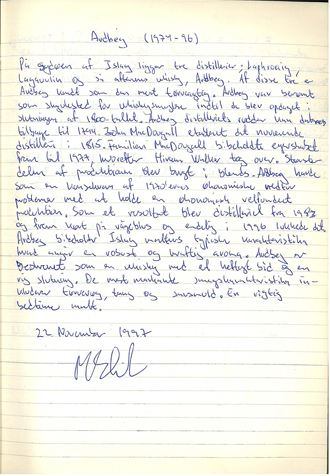 Ardbeg (1974-96)
På sydøen af Islay ligger tre distillerier, Laphroaig,
Lagavulin og så aftenens whisky, Ardbeg. Af disse tre er
Ardbeg kendt som den mest tørveagtig. Ardbeg var berømt
som skjulested for whiskysmuglere indtil de blev opdaget i
slutningen af 1800-tallet. Ardbeg distilleriets rødder kan dateres
tilbage til 1794. John MacDougall etableret det nuværende
distilleri i 1815. Familien MacDougall bibeholdte ejerskabet
frem til 1977, hvorefter Hiram Walker tog over. Størstedelen
af produktionen blev brugt i blends. Ardbeg havde
som en konsekvens af 1970'ernes økonomiske
problemer med at holde en økonomisk velfunderet
produktion. Som et resultat blev distilleriet fra 198
og frem kørt på vågeblus og endelig i 1996 lukkede det.
Ardbeg bibeholder Islay malternes typiske karakteristika
hvad angår en robust og kraftig aroma. Ardbeg er
bedømt som en whisky med et heftigt bid og en
rig slutning. De mest markante smagskarakteristika in-
kluderer tørverøg, tang og smørmuld. En vigtig
bedtime malt.
22 November 1997